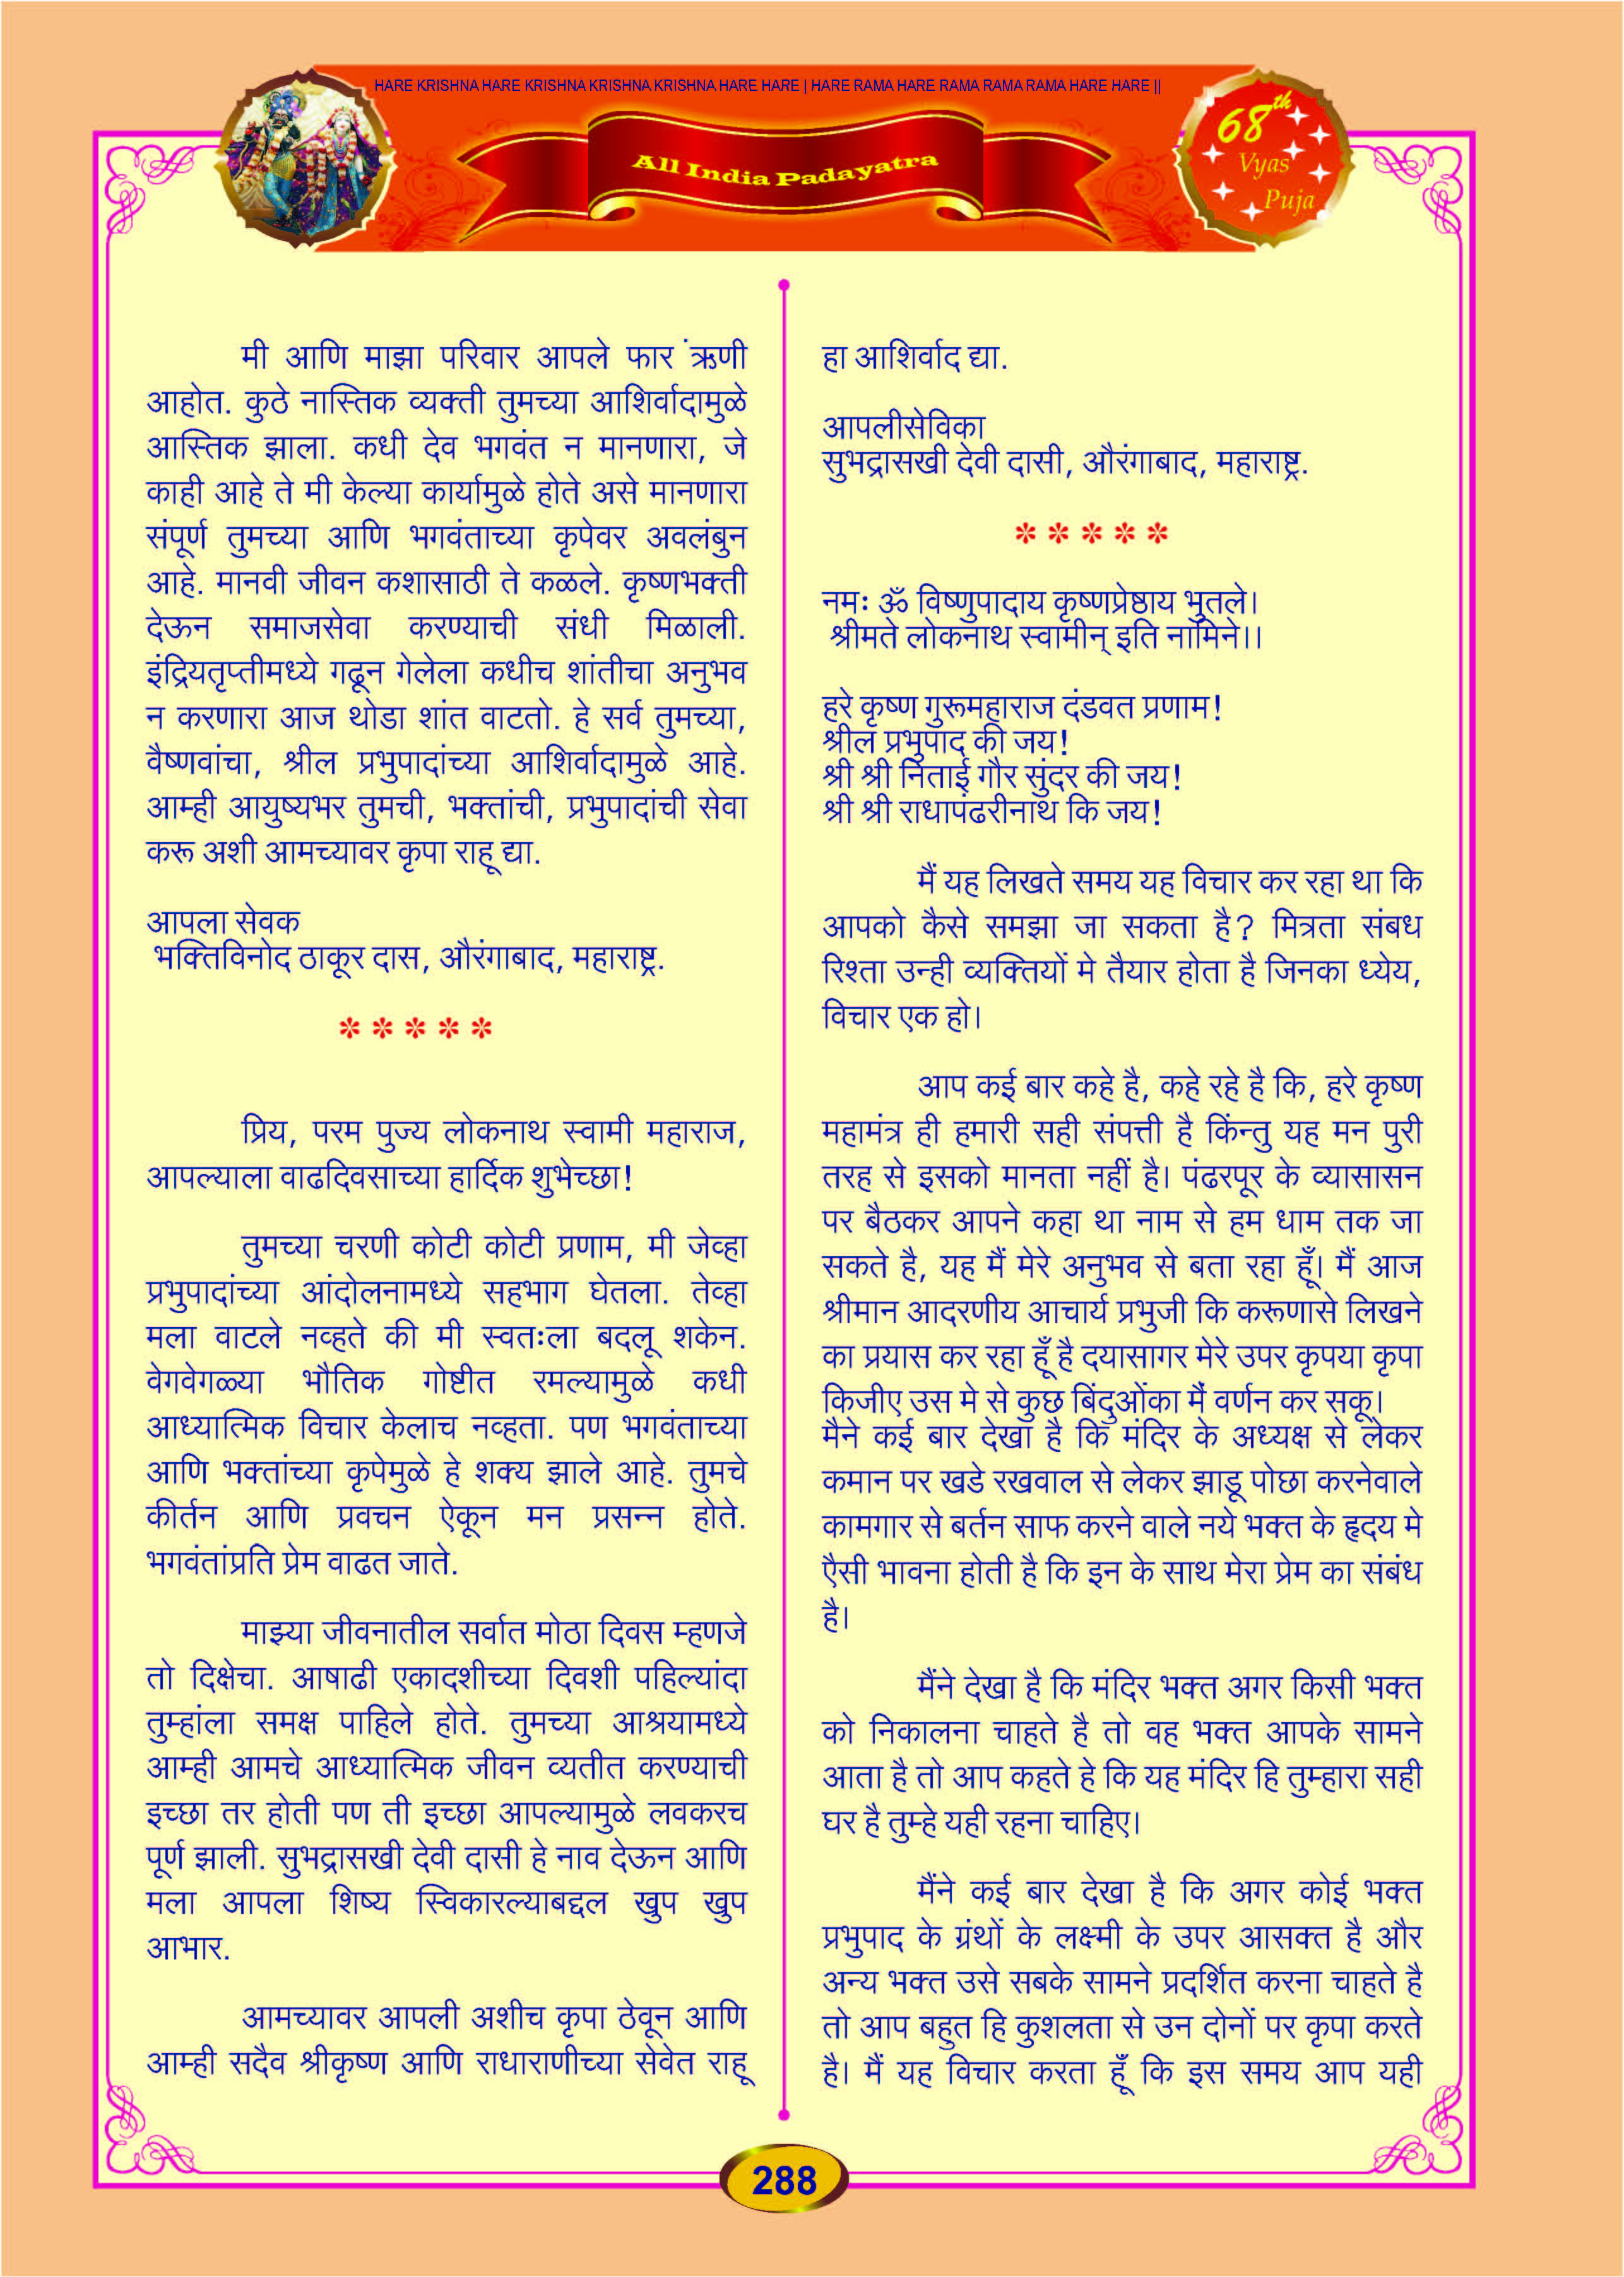 HARE KRISHNA HARE KRISHNA KRISHNA KRISHNA HARE HARE | HARE RAMA HARE RAMA RAMA RAMA HARE HARE ||
All India Padayatra
68th
Vyas
Puja
मी आणि माझा परिवार आपले फार ंऋणी
आहोत. कुठे नास्तिक व्यक्ती तुमच्या आशिर्वादामुळे
आस्तिक झाला. कधी देव भगवंत न मानणारा, जे
काही आहे ते मी केल्या कार्यामुळे होते असे मानणारा
संपूर्ण तुमच्या आणि भगवंताच्या कृपेवर अवलंबुन
आहे. मानवी जीवन कशासाठी ते कळले. कृष्णभक्ती
देऊन समाजसेवा करण्याची संधी मिळाली.
इंद्रियतृप्तीमध्ये गढून गेलेला कधीच शांतीचा अनुभव
न करणारा आज थोडा शांत वाटतो. हे सर्व तुमच्या,
वैष्णवांचा, श्रील प्रभुपादांच्या आशिर्वादामुळे आहे.
आम्ही आयुष्यभर तुमची, भक्तांची, प्रभुपादांची सेवा
करू अशी आमच्यावर कृपा राहू द्या.
आपला सेवक
भक्तिविनोद ठाकूर दास, औरंगाबाद, महाराष्ट्र.
* * * * *
प्रिय, परम पुज्य लोकनाथ स्वामी महाराज,
आपल्याला वाढदिवसाच्या हार्दिक शुभेच्छा!
तुमच्या चरणी कोटी कोटी प्रणाम, मी जेव्हा
प्रभुपादांच्या आंदोलनामध्ये सहभाग घेतला. तेव्हा
मला वाटले नव्हते की मी स्वतःला बदलू शकेन.
वेगवेगळ्या भौतिक गोष्टीत रमल्यामुळे कधी
आध्यात्मिक विचार केलाच नव्हता. पण भगवंताच्या
आणि भक्तांच्या कृपेमुळे हे शक्य झाले आहे. तुमचे
कीर्तन आणि प्रवचन ऐकून मन प्रसन्न होते.
भगवंतांप्रति प्रेम वाढत जाते.
माझ्या जीवनातील सर्वात मोठा दिवस म्हणजे
तो दिक्षेचा. आषाढी एकादशीच्या दिवशी पहिल्यांदा
तुम्हांला समक्ष पाहिले होते. तुमच्या आश्रयामध्ये
आम्ही आमचे आध्यात्मिक जीवन व्यतीत करण्याची
इच्छा तर होती पण ती इच्छा आपल्यामुळे लवकरच
पूर्ण झाली. सुभद्रासखी देवी दासी हे नाव देऊन आणि
मला आपला शिष्य स्विकारल्याबद्दल खुप खुप
आभार.
आमच्यावर आपली अशीच कृपा ठेवून आणि
आम्ही सदैव श्रीकृष्ण आणि राधाराणीच्या सेवेत राहू
हा आशिर्वाद द्या.
आपलीसेविका
सुभद्रासखी देवी दासी, औरंगाबाद, महाराष्ट्र.
* * * * *
नमः ॐ विष्णुपादाय कृष्णप्रेष्ठाय भुतले।
श्रीमते लोकनाथ स्वामीन् इति नामिने।।
हरे कृष्ण गुरूमहाराज दंडवत प्रणाम!
श्रील प्रभुपाद की जय!
श्री श्री निताई गौर सुंदर की जय!
श्री श्री राधापंढरीनाथ कि जय!
मैं यह लिखते समय यह विचार कर रहा था कि
आपको कैसे समझा जा सकता है? मित्रता संबध
रिश्ता उन्ही व्यक्तियों मे तैयार होता है जिनका ध्येय,
विचार एक हो।
आप कई बार कहे है, कहे रहे है कि, हरे कृष्ण
महामंत्र ही हमारी सही संपत्ती है किंन्तु यह मन पुरी
तरह से इसको मानता नहीं है। पंढरपूर के व्यासासन
पर बैठकर आपने कहा था नाम से हम धाम तक जा
सकते है, यह मैं मेरे अनुभव से बता रहा हूँ। मैं आज
श्रीमान आदरणीय आचार्य प्रभुजी कि करूणासे लिखने
का प्रयास कर रहा हूँ है दयासागर मेरे उपर कृपया कृपा
किजीए उस मे से कुछ बिंदुओंका मैं वर्णन कर सकू।
मैने कई बार देखा है कि मंदिर के अध्यक्ष से लेकर
कमान पर खडे रखवाल से लेकर झाडू पोछा करनेवाले
कामगार से बर्तन साफ करने वाले नये भक्त के हृदय मे
एैसी भावना होती है कि इन के साथ मेरा प्रेम का संबंध
है।
मैंने देखा है कि मंदिर भक्त अगर किसी भक्त
को निकालना चाहते है तो वह भक्त आपके सामने
आता है तो आप कहते हे कि यह मंदिर हि तुम्हारा सही
घर है तुम्हे यही रहना चाहिए।
मैंने कई बार देखा है कि अगर कोई भक्त
प्रभुपाद के ग्रंथों के लक्ष्मी के उपर आसक्त है और
अन्य भक्त उसे सबके सामने प्रदर्शित करना चाहते है
तो आप बहुत हि कुशलता से उन दोनों पर कृपा करते
है। मैं यह विचार करता हूँ कि इस समय आप यही
288